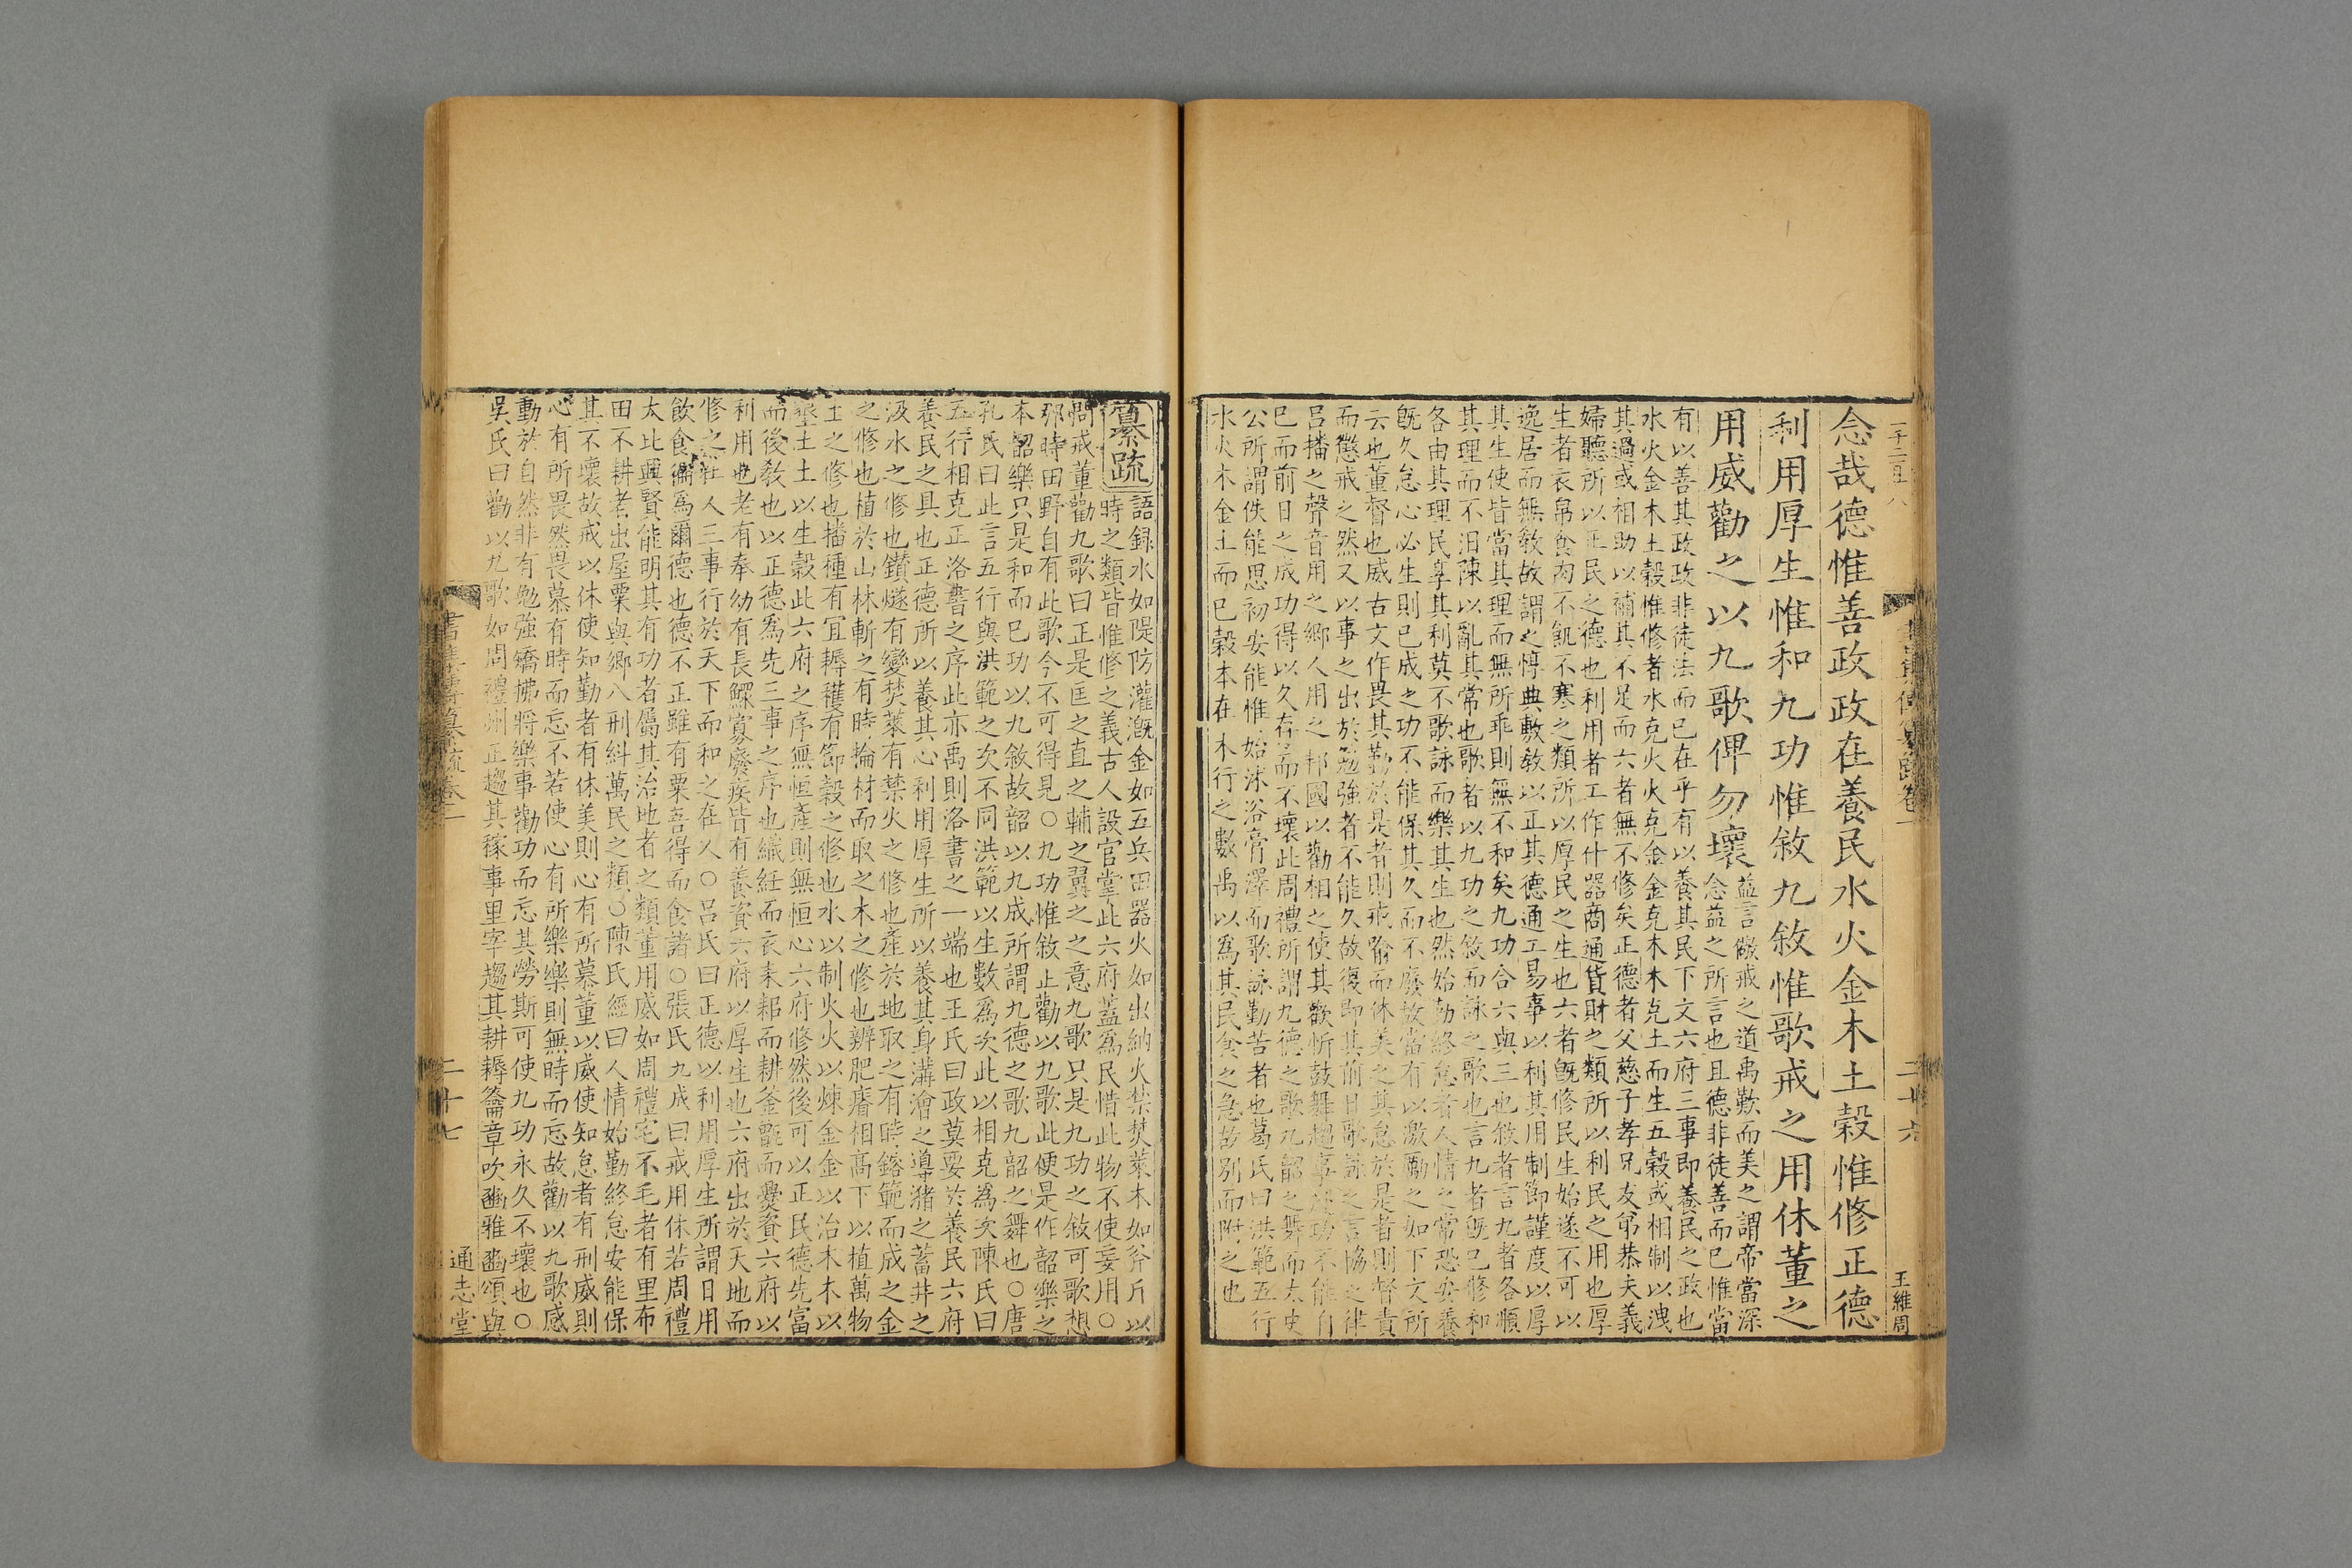 念哉德惟善政政在養民水火金木土穀惟修正德
利用厚生惟和九功惟敘九敘惟歌戒之用休董之
用威勸之以九歌俾勿壞
益言儆戒之道禹歎而美之謂帝當深
念益之所言也且德非徒善而已惟當
有以善其政政非徒法而已在乎有以養其民下文六府三事即養民之政也
水火金木土穀惟修者水克火火克金金克木木克土而生五穀或相制以洩
其過或相助以補其不足而六者無不修矣正德者父慈子孝兄友弟恭夫義
婦聽所以正民之德也利用者工作什器商通貨財之類所以利民之用也厚
生者衣帛食肉不飢不寒之類所以厚民之生也六者既修民生始遂不可以
逸居而無教故謂之惇典敷教以正其德通工易事以利其用制節謹度以厚
其生使皆當其理而無所乖則無不和矣九功合六與三也敘者言九者各順
其理而不汨陳以亂其常也歌者以九功之敘而詠之歌也言九者既已修和
各由其理民享其利莫不歌詠而樂其生也然始勤終怠者人情之常恐安養
既久怠心必生則已成之功不能保其久而不廢故當有以激勵之如下文所
云也董督也威古文作畏其勤於是者則戒喻而休美之其怠於是者則督責
而懲戒之然又以事之出於勉強者不能久故復即其前日歌詠之言協之律
呂播之聲音用之鄉人用之邦國以勸相之使其歡忻鼓舞趨事赴功不能自
已而前日之成功得以久存而不壞此周禮所謂九德之歌九韶之舞而太史
公所謂佚能思初安能惟始沐浴膏澤而歌詠勤苦者也葛氏曰洪範五行
水火木金土而已穀本在木行之數禹以爲其民食之急故別而附之也
二十六
王維周
纂疏
語錄水如隄防灌漑金如五兵田器火如出納火禁焚萊木如斧斤以
時之類皆惟修之義古人設官掌此六府蓋爲民惜此物不使妄用○
問戒董勸九歌曰正是匡之直之輔之翼之之意九歌只是九功之敘可歌想
那時田野自有此歌今不可得見○九功惟敘止勸以九歌此便是作韶樂之
本韶樂只是和而已功以九敘故韶以九成所謂九德之歌九韶之舞也○唐
孔氏曰此言五行與洪範之次不同洪範以生數爲次此以相克爲次陳氏曰
五行相克正洛書之序此亦禹則洛書之一端也王氏曰政莫要於養民六府
養民之具也正德所以養其心利用厚生所以養其身溝澮之導瀦之蓄井之
汲水之修也鑽燧有變焚萊有禁火之修也產於地取之有時鎔範而成之金
之修也植於山林斬之有時掄材而取之木之修也辨肥瘠相高下以植萬物
土之修也播種有宜耨穫有節穀之修也水以制火火以煉金金以治木木以
墾土土以生穀此六府之序無恒產則無恒心六府修然後可以正民德先富
而後教也以正德爲先三事之序也織絍而衣耒耜而耕釜甑而爨資六府以
利用也老有奉幼有長鰥寡廢疾皆有養資六府以厚生也六府出於天地而
修之在人三事行於天下而和之在人○呂氏曰正德以利用厚生所謂日用
飲食徧爲爾德也德不正雖有粟吾得而食諸○張氏九成曰戒用休若周禮
大比興賢能明其有功者屬其治地者之類董用威如周禮宅不毛者有里布
田不耕者出屋粟與鄉八刑糾萬民之類○陳氏經曰人情始勤終怠安能保
其不壞故戒以休使知勤者有休美則心有所慕董以威使知怠者有刑威則
心有所畏然畏慕有時而忘不若使心有所樂樂則無時而忘故勸以九歌感
動於自然非有勉強矯拂將樂事勸功而忘其勞斯可使九功永久不壞也○
吳氏曰勸以九歌如周禮州正趨其稼事里宰趨其耕耨籥章吹豳雅豳頌與
二十七
通志堂